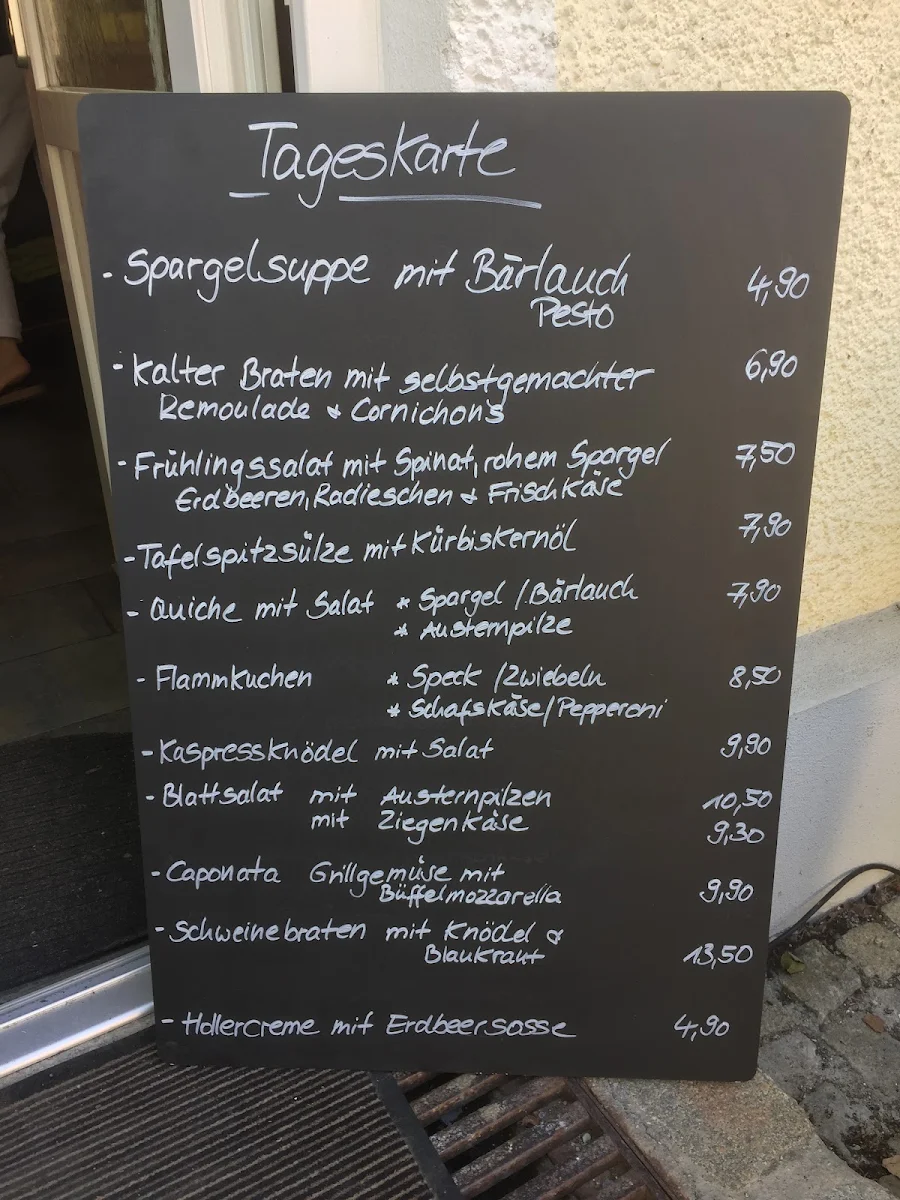 Tageskarte
- Spargelsuppe mit Bärlauch 4,90
Pesto
- Kalter Braten mit selbstgemachter 6,90
Remoulade & Cornichon's
- Frühlingssalat mit Spinat, rohem Spargel 7,50
Erdbeeren, Radieschen & Frischkäse
- Tafelspitzsülze mit Kürbiskernöl 7,90
- Quiche mit Salat * Spargel / Bärlauch 7,90
* Austernpilze
- Flammkuchen * Speck / Zwiebeln 8,50
* Schafskäse / Pepperoni
- Kaspressknödel mit Salat 9,90
- Blattsalat mit Austernpilzen 10,50
mit Ziegenkäse 9,30
- Caponata Grillgemüse mit
Büffelmozzarella 9,90
- Schweinebraten mit Knödel &
Blaukraut 13,50
- Hollercreme mit Erdbeersosse 4,90